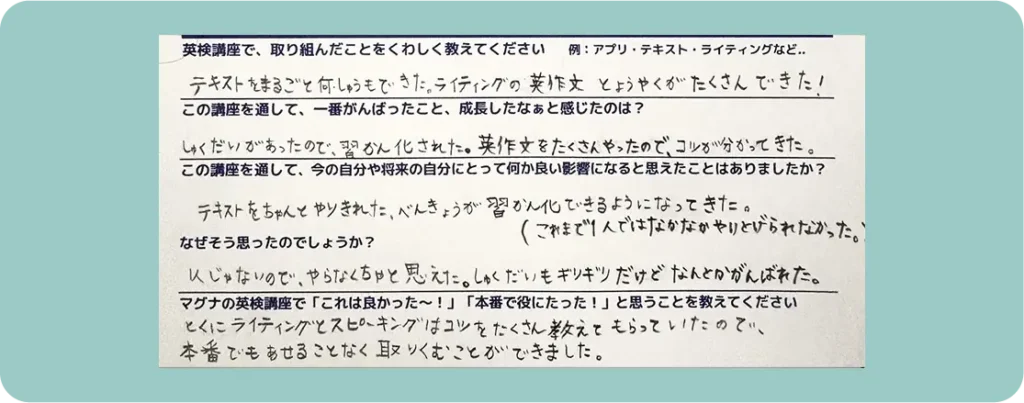 英検講座で、取り組んだことをくわしく教えてください　例：アプリ・テキスト・ライティングなど..
テキストをまるごと何しゅうもできた。ライティングの英作文とようやくがたくさんできた！
この講座を通して、一番がんばったこと、成長したなぁと感じたのは？
しゅくだいがあったので、習かん化された。英作文をたくさんやったので、コツが分かってきた。
この講座を通して、今の自分や将来の自分にとって何か良い影響になると思えたことはありましたか？
テキストをちゃんとやりきれた、べんきょうが習かん化できるようになってきた。
（これまで1人ではなかなかやりとげられなかった。）
なぜそう思ったのでしょうか？
1人じゃないので、やらなくちゃと思えた。しゅくだいもギリギリだけどなんとかがんばれた。
マグナの英検講座で「これは良かった〜！」「本番で役にたった！」と思うことを教えてください
とくにライティングとスピーキングはコツをたくさん教えてもらっていたので、
本番でもあせることなく取りくむことができました。